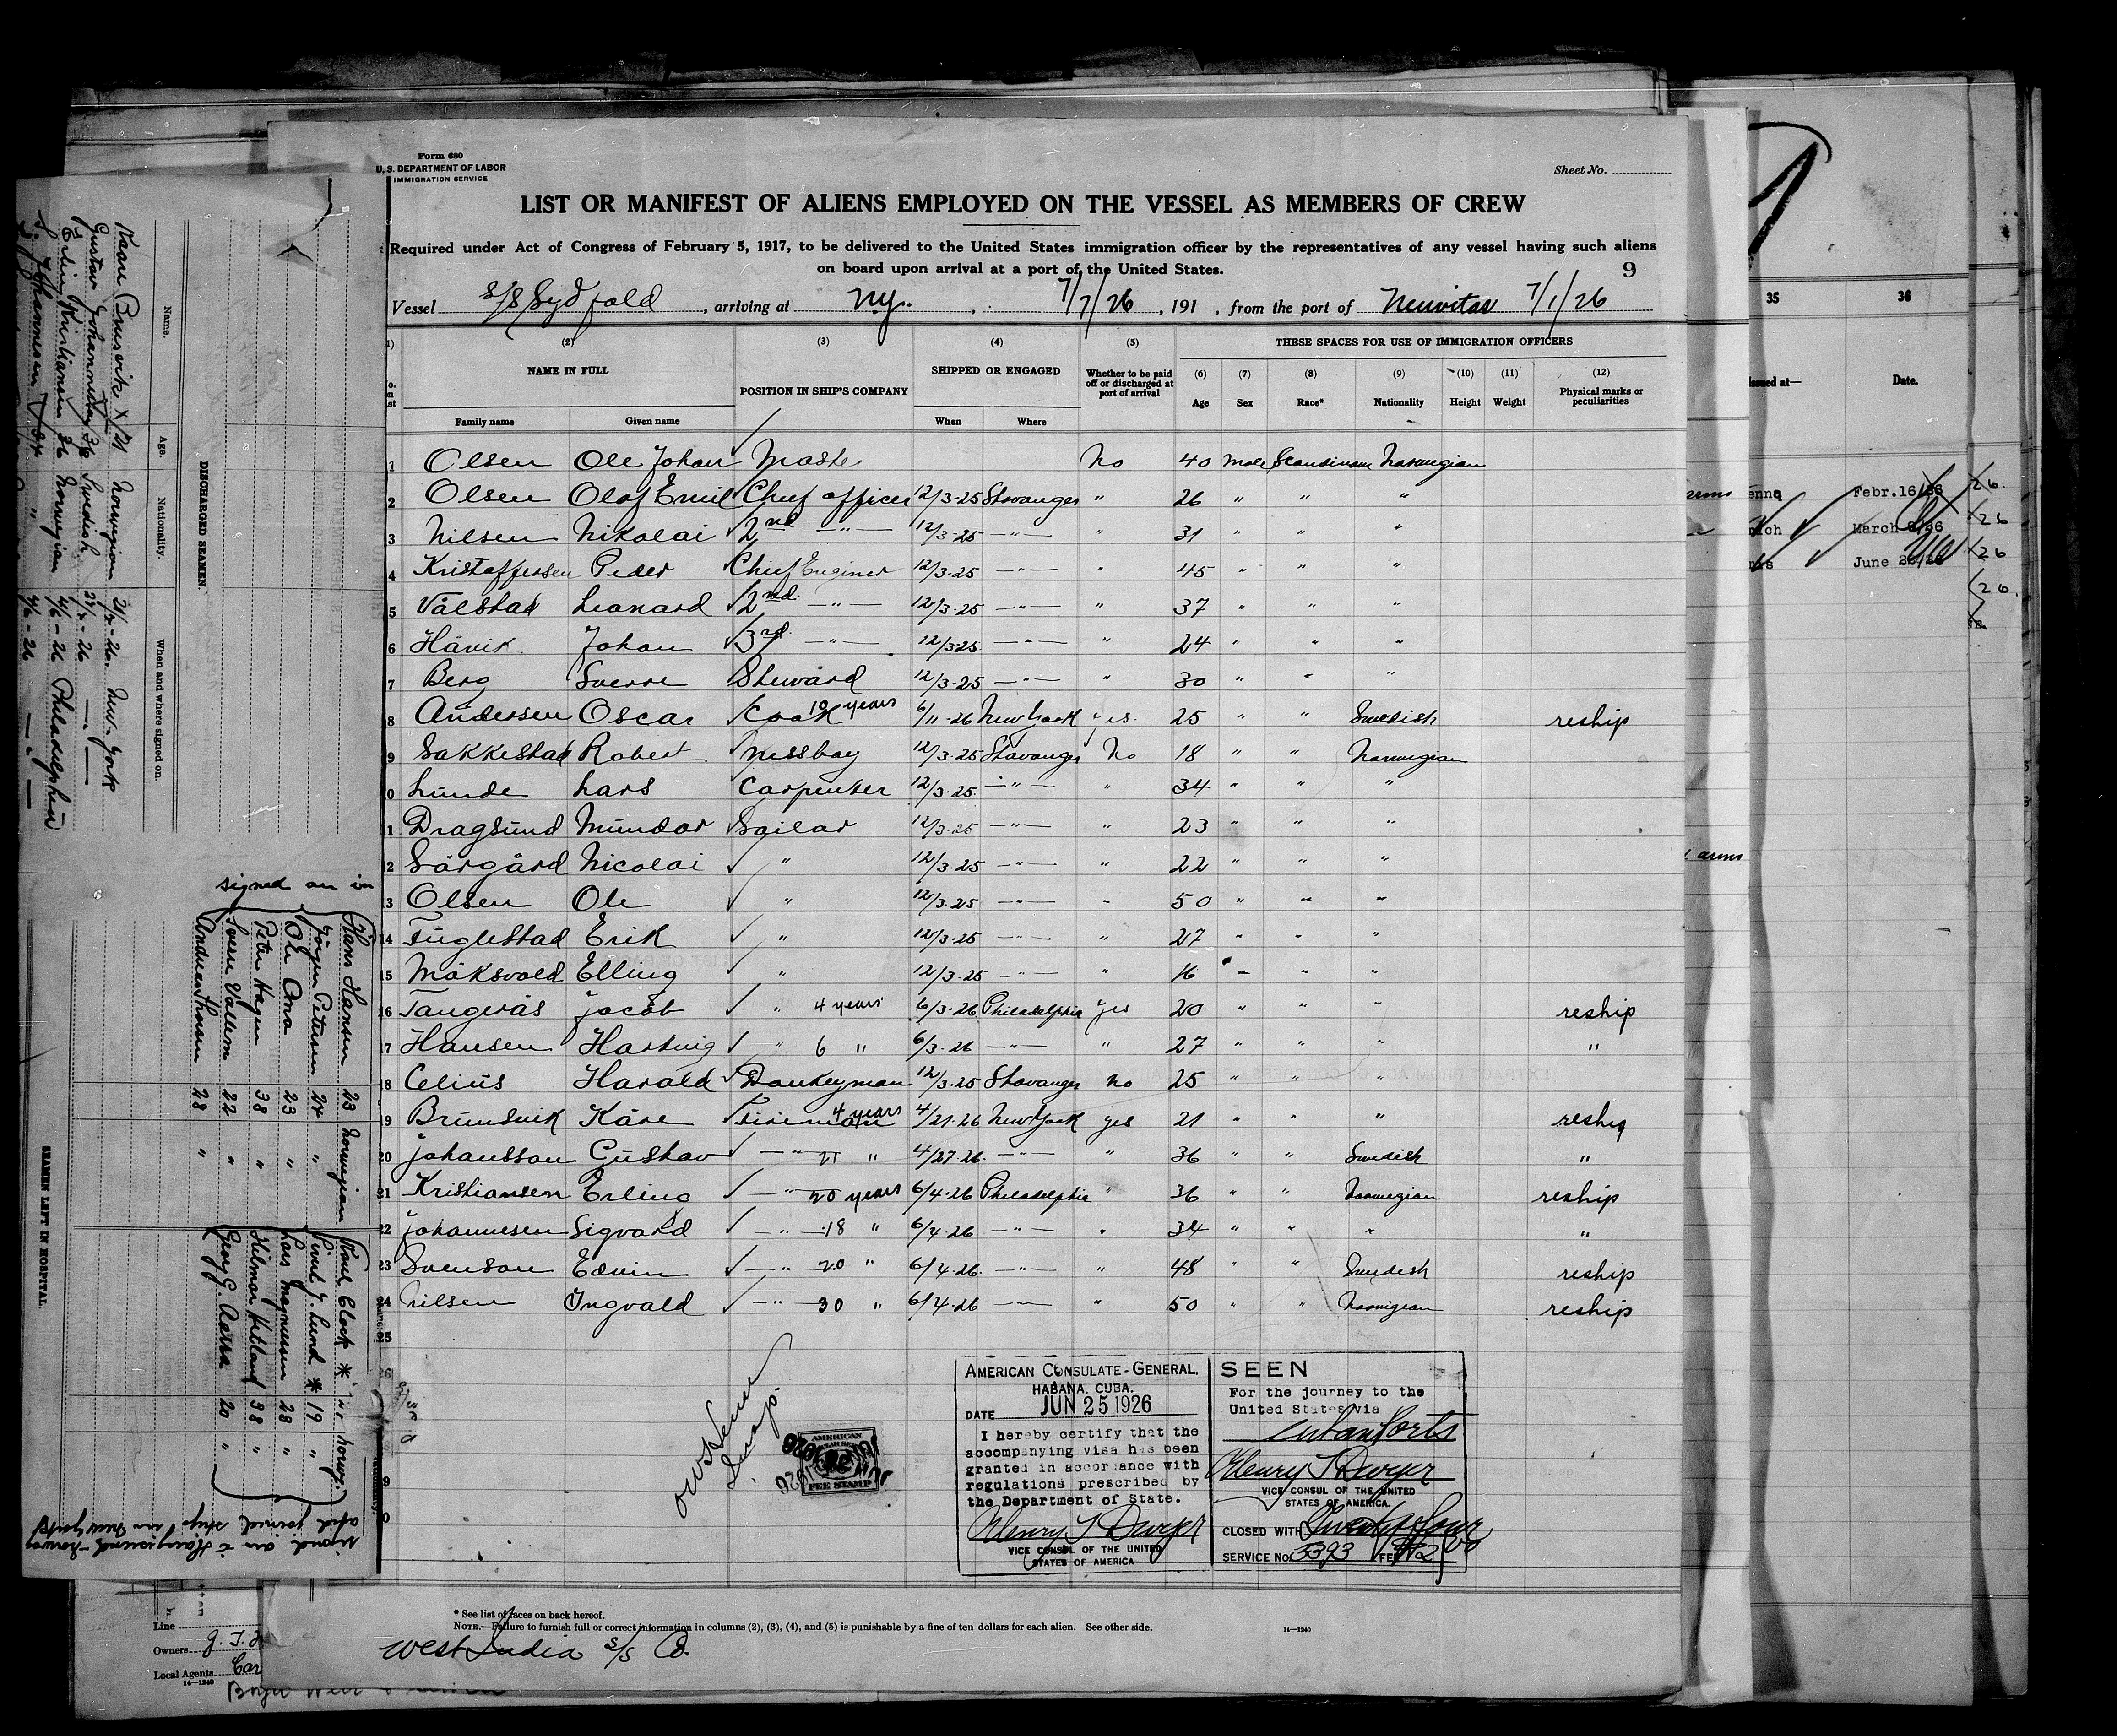 Form 680
U. S. DEPARTMENT OF LABOR
IMMIGRATION SERVICE
Sheet No.
LIST OR MANIFEST OF ALIENS EMPLOYED ON THE VESSEL AS MEMBERS OF CREW
Required under Act of Congress of February 5, 1917, to be delivered to the United States immigration officer by the representatives of any vessel having such aliens
on board upon arrival at a port of the United States.
9
Vessel S/S Sydfold, arriving at N.Y. 7/7/26, 191 , from the port of Neuvitas 7/1/26
(2) (3) (4) (5) THESE SPACES FOR USE OF IMMIGRATION OFFICERS
NAME IN FULL POSITION IN SHIP'S COMPANY SHIPPED OR ENGAGED Whether to be paid off or discharged at port of arrival (6) Age (7) Sex (8) Race* (9) Nationality (10) Height (11) Weight (12) Physical marks or peculiarities
Family name Given name When Where
1 Olsen Ole Johan Master No 40 Male Scandinavn Norwegian
2 Olsen Olaf Emil Chief officer 12/3-25 Stavanger " 26 " " "
3 Nilsen Nikolai 2nd -"- 12/3-25 -"- " 31 " " "
4 Kristoffersen Peder Chief Enginer 12/3-25 -"- " 45 " " "
5 Vålstad Leonard 2nd -"- 12/3-25 -"- " 37 " " "
6 Håvik Johan 3rd -"- 12/3 25 -"- " 24 " " "
7 Berg Sverre Steward 12/3-25 -"- " 30 " " "
8 Andersen Oscar Cook 10 years 6/11-26 New York yes 25 " " Swedish reship
9 Sakkestad Robert Messboy 12/3-25 Stavanger No 18 " " Norwegian
0 Lunde Lars Carpenter 12/3-25 -"- " 34 " " "
1 Dragsund Mundor Sailor 12/3-25 -"- " 23 " " "
2 Sårgård Nicolai " 12/3-25 -"- " 22 " " "
3 Olsen Ole " 12/3-25 -"- " 50 " " "
14 Fuglestad Erik " 12/3-25 -"- " 27 " " "
15 Måksvold Elling " 12/3-25 -"- " 16 " " "
16 Tangerås Jacob " 4 years 6/3-26 Philadelphia yes 20 " " " reship
17 Hansen Hartvig " 6 " 6/3-26 -"- " 27 " " " "
18 Celius Harald Donkeyman 12/3-25 Stavanger no 25 " " "
19 Brunsvik Kåre Fireman 4 years 4/21-26 New York yes 21 " " " reship
20 Johansson Gustav -"- 21 " 4/27-26 -"- " 36 " " Swedish "
21 Kristiansen Erling -"- 20 years 6/4-26 Philadelphia " 36 " " Norwegian reship
22 Johannesen Sigvard -"- 18 " 6/4-26 -"- " 34 " " " "
23 Svenson Edvin -"- 20 " 6/4-26 -"- " 48 " " Swedish reship
24 Nilsen Ingvald -"- 30 " 6/4-26 -"- " 50 " " Norwigean reship
25
AMERICAN CONSULATE-GENERAL.
HABANA, CUBA.
DATE JUN 25 1926
I hereby certify that the
accompanying visa has been
granted in accordance with
regulations prescribed by
the Department of State.
Henry T Dwyer
VICE CONSUL OF THE UNITED
STATES OF AMERICA
SEEN
For the journey to the
United States via
Cuban Ports
Henry T Dwyer
VICE CONSUL OF THE UNITED
STATES OF AMERICA.
CLOSED WITH Twenty four
SERVICE No. 5393 FEE $2 00
AMERICAN
FEE STAMP
* See list of races on back hereof.
NOTE.—Failure to furnish full or correct information in columns (2), (3), (4), and (5) is punishable by a fine of ten dollars for each alien. See other side.
14—1240
West India S/S Co.
Line
Owners J. T.
Local Agents Car
14—1240
DISCHARGED SEAMEN.
Name. Age. Nationality. When and where signed on.
Kaare Brunsvik 21 Norwegian 21/4-26. New-York
Gustav Johannesen 36 Swedish 27/4-26 -"-
Erling Kristiansen 36 Norwegian 4/6-26 Philadelphia
S. Johannesen 34 " 4/6-26 -"-
signed on in
SEAMEN LEFT IN HOSPITAL.
Hans Hansen 23 Norwegian
Jörgen Petersen 24 "
Ole Ona 23 "
Peter Hagen 38 "
Sverre Vallem 22 "
Andreas Thorsen 28 "
Karl Clock *
Sivert J. Lund * 19 "
Lars Magnussen 23 "
Hilmar Kitland 38 "
Georg G. Aarra 20 "
signed on in Haugesund Norway
and joined ship in New York
35 36
Issued at— Date.
Febr.16/26
March
June